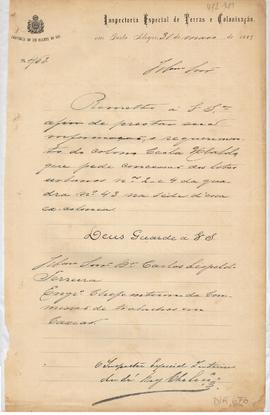 Inspectoria Especial de Terras e Colonização,
em Porto Alegre, 31 de março de 1887
Illmo Snr
Remetto a S. Sa
afim de prestar sua
informação, o requerimen-
to do colono
que pede concessão dos lotes
urbanos nos 2 e 4 da qua-
dra nº 43 na séde d'essa
ex-colonia.
Deus Guarde a V S.
Illmo Snr Dr Carlos Leopoldo
Ferreira
Engº Chefe interino da Com-
missão de trabalhos em
Caxias
O Inspector Especial Interino